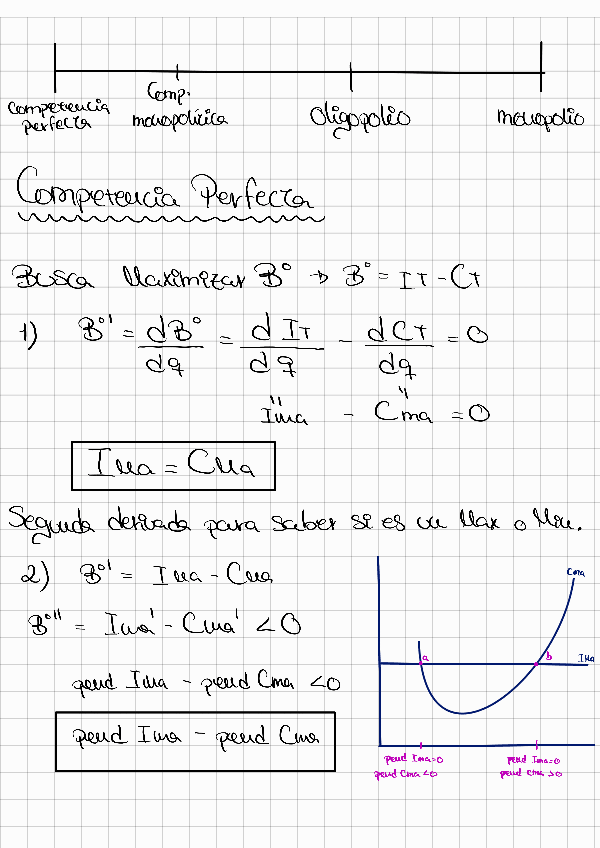 Competencia perfecta
Comp. monopolística
oligopolio
monopolio
Competencia Perfecta
Busca Maximizar B° → B° = IT - CT
1) B°' = dB°/dq = dIT/dq - dCT/dq = 0
" "
Ima - Cma = 0
Ima = Cma
Segunda derivada para saber si es un Max o Min.
2) B°' = Ima - Cma
B°'' = Ima' - Cma' < 0
pend Ima - pend Cma < 0
pend Ima - pend Cma
Cma
a
b
Ima
pend Ima=0
pend Cma <0
pend Ima=0
pend Cma >0